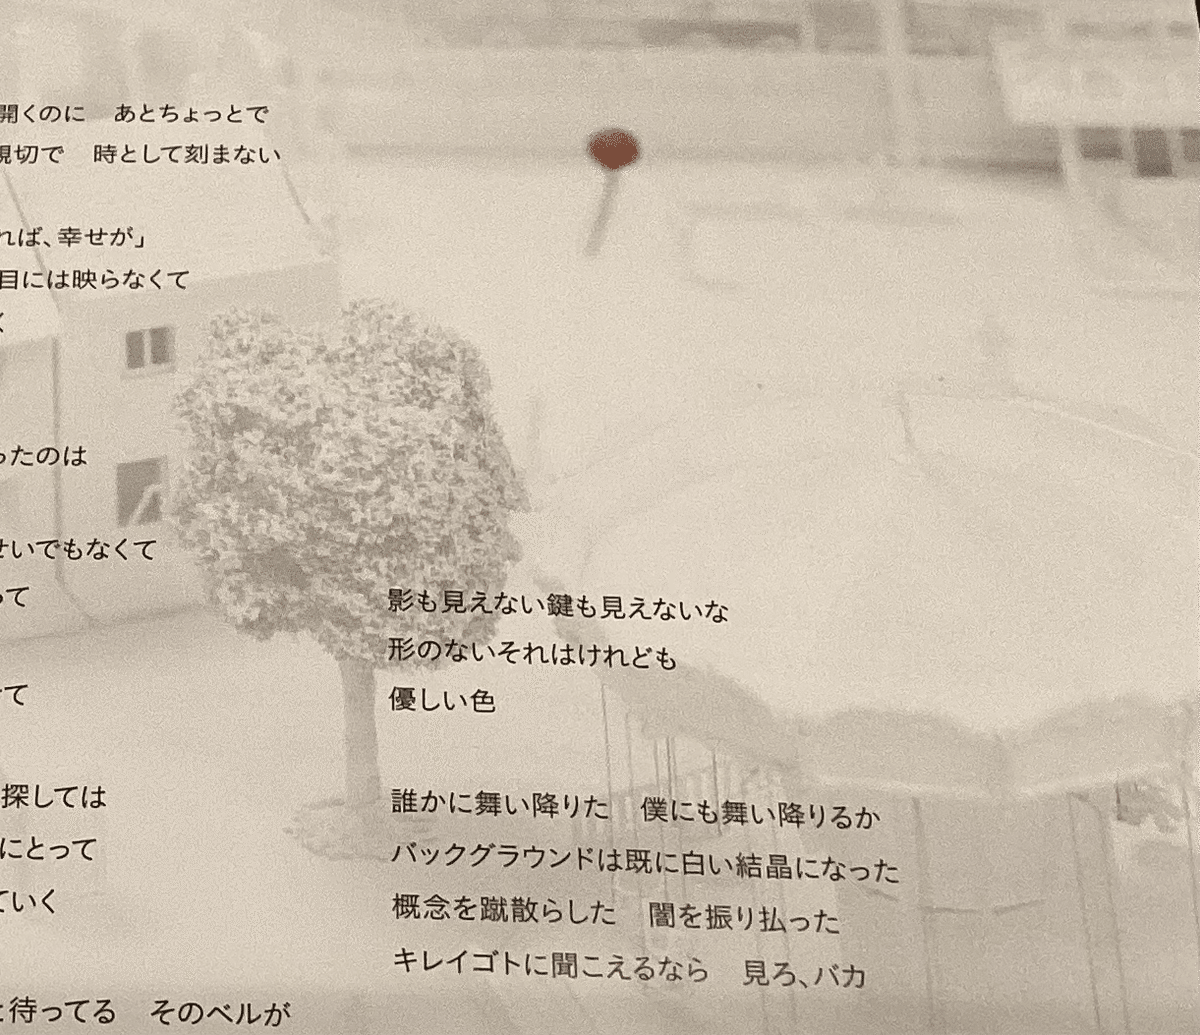 開くのに　あとちょっとで
親切で　時として刻まない
れば、幸せが」
目には映らなくて
く
ったのは
せいでもなくて
って
て
探しては
にとって
ていく
と待ってる　そのベルが
影も見えない鍵も見えないな
形のないそれはけれども
優しい色
誰かに舞い降りた　僕にも舞い降りるか
バックグラウンドは既に白い結晶になった
概念を蹴散らした　闇を振り払った
キレイゴトに聞こえるなら　見ろ、バカ